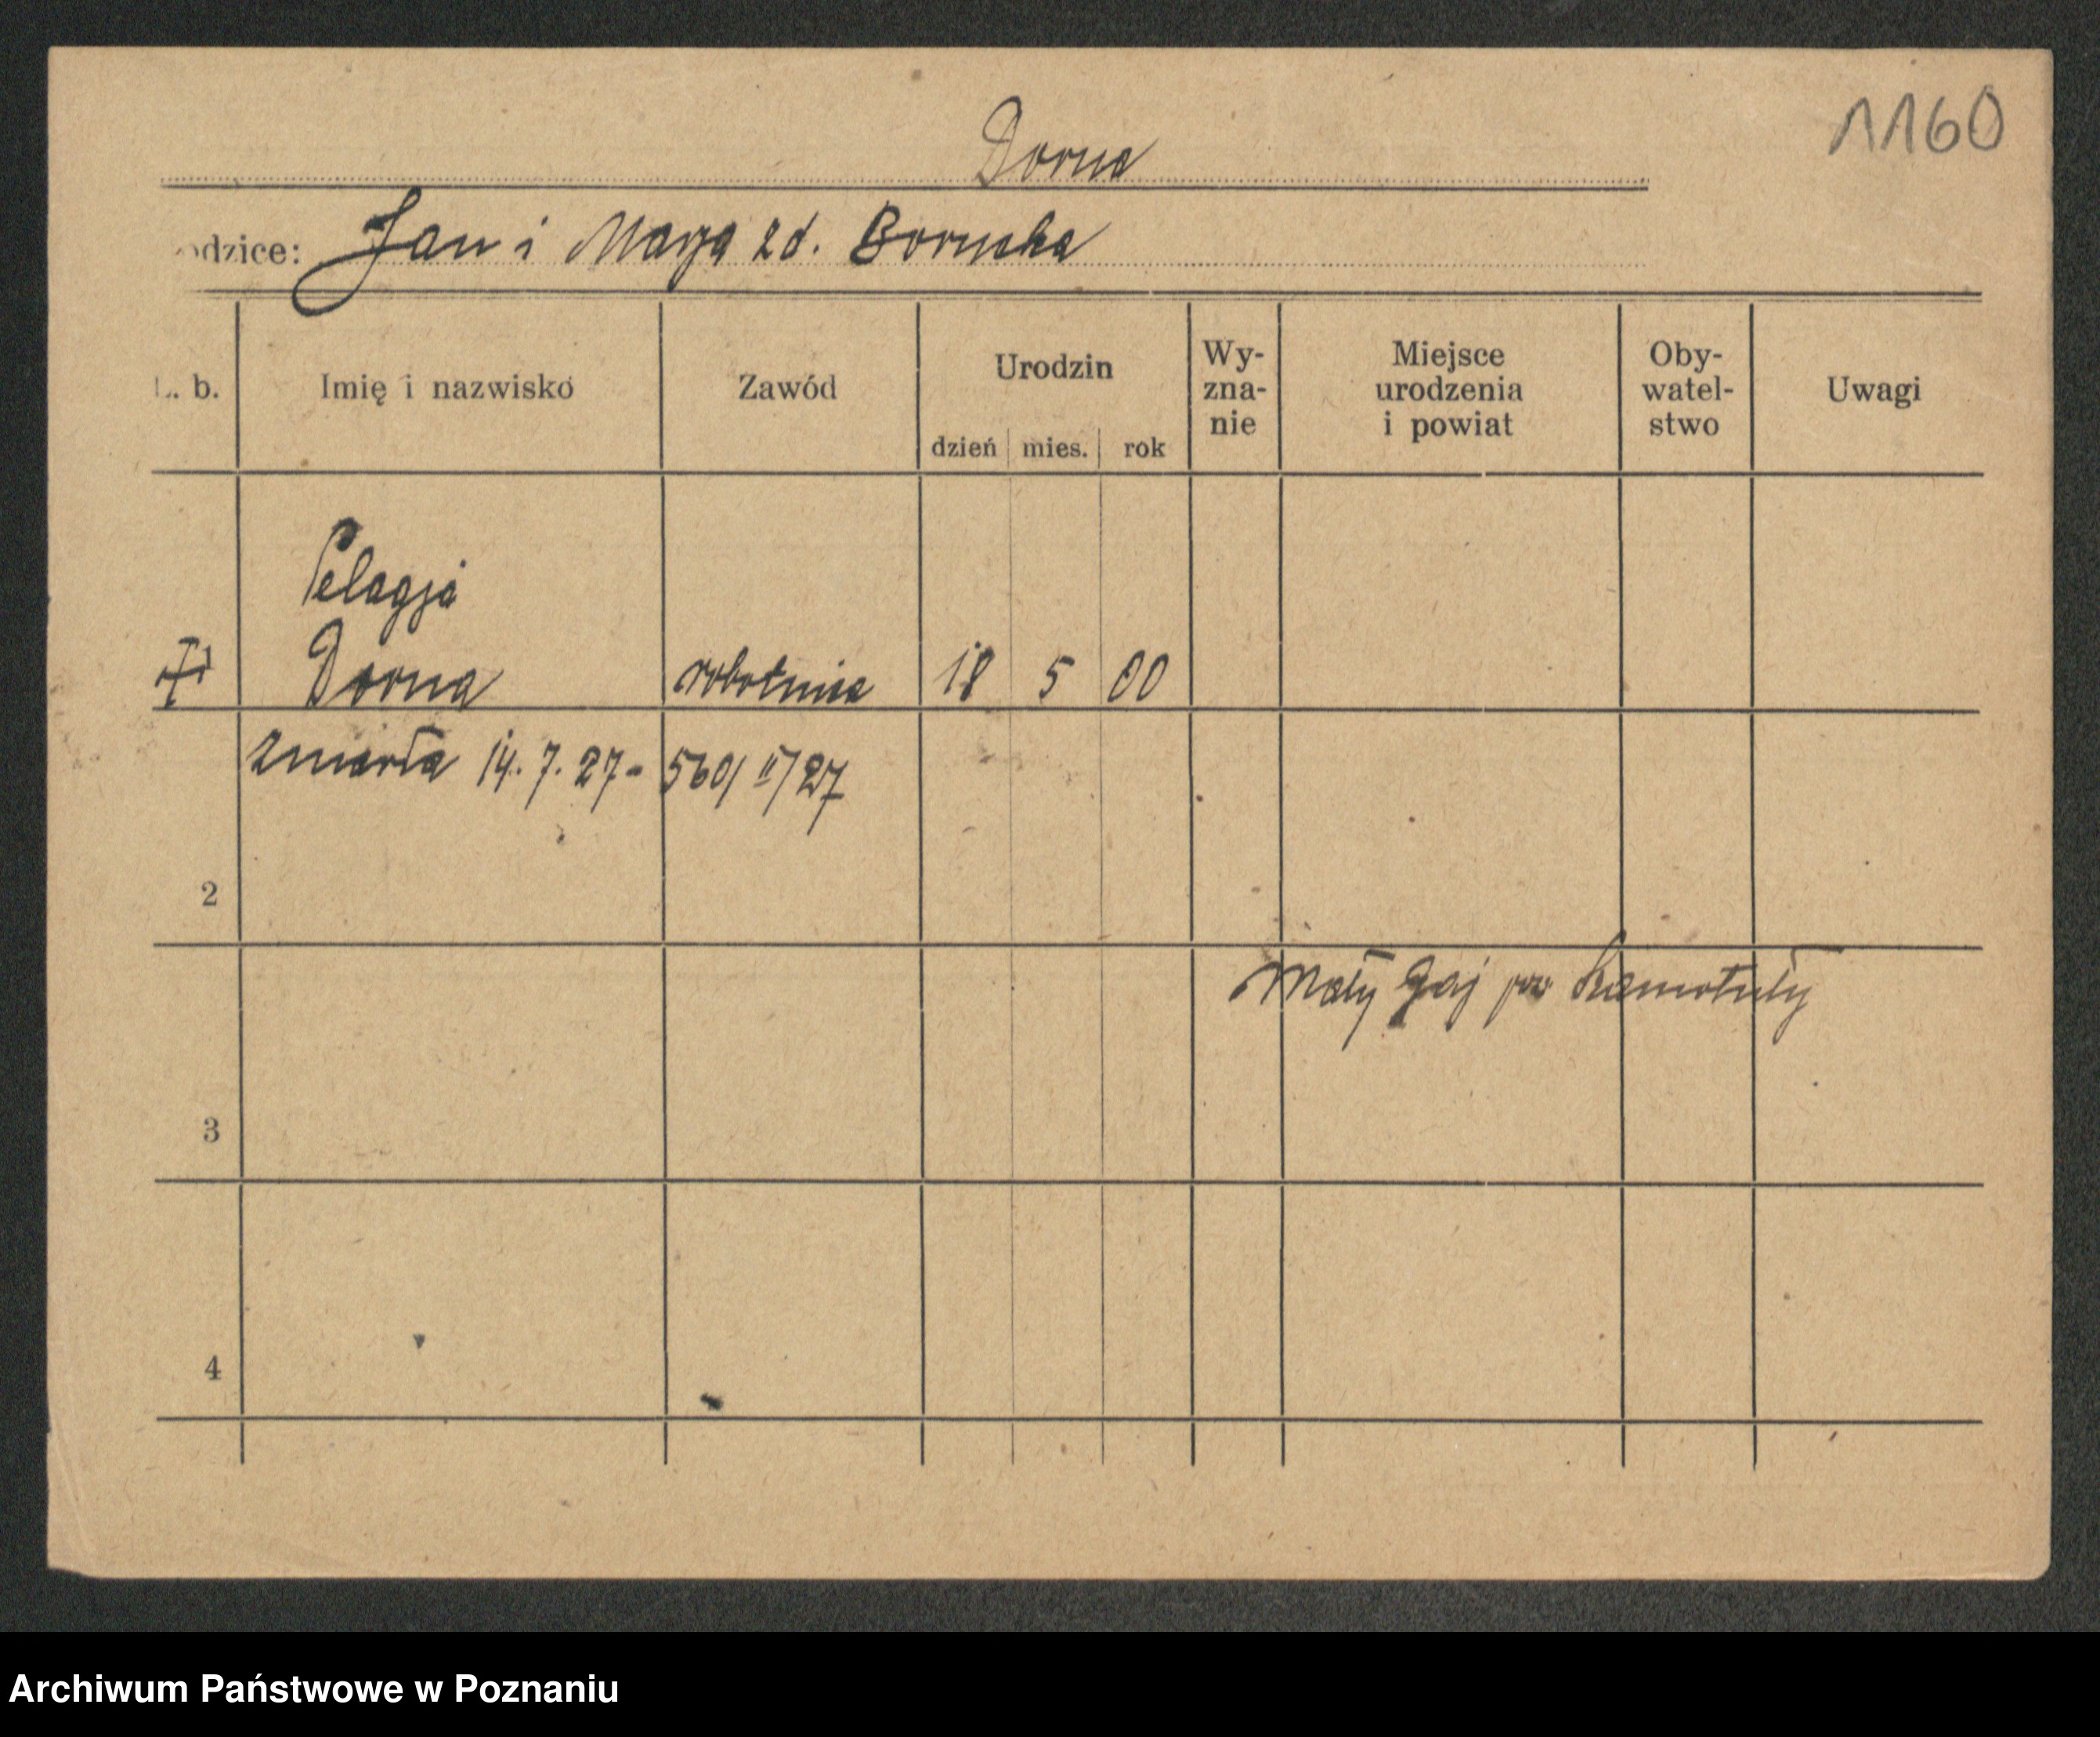 1160
Dorna
odzice: Jan i Marja zd. Borucka
L. b. Imię i nazwisko Zawód Urodzin dzień mies. rok Wy-zna-nie Miejsce urodzenia i powiat Oby-watel-stwo Uwagi
Pelagja
Dorna robotnica 18 5 00
zmarła 14. 7. 27 - 560/II/27
2
Mały Gaj pow Szamotuły
3
4
Archiwum Państwowe w Poznaniu